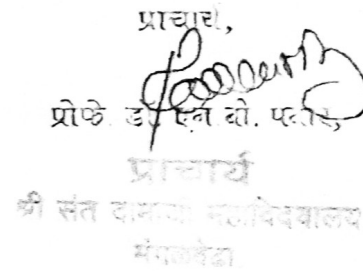 प्राचार्य,
प्रोफे. डॉ. एन. बी. पवार,
प्राचार्य
श्री संत दामाजी महाविद्यालय
मंगळवेढा